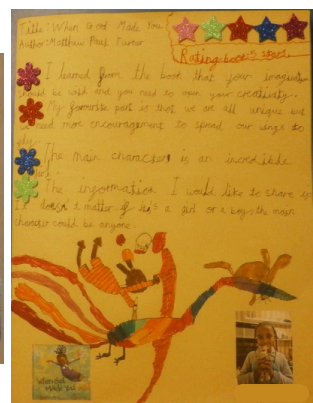 Title: When God Made You
Author: Matthew Paul Turner
Rating book 5 stars.
I learned from the book that your imagination
should be wild and you need to open your creativity.
My favorite part is that we are all unique but
we need more encouragement to spread our wings to
The main character is an incredible
The information I would like to share is
It doesn't matter if it's a girl or a boy, the main
character could be anyone.
When God
Made You